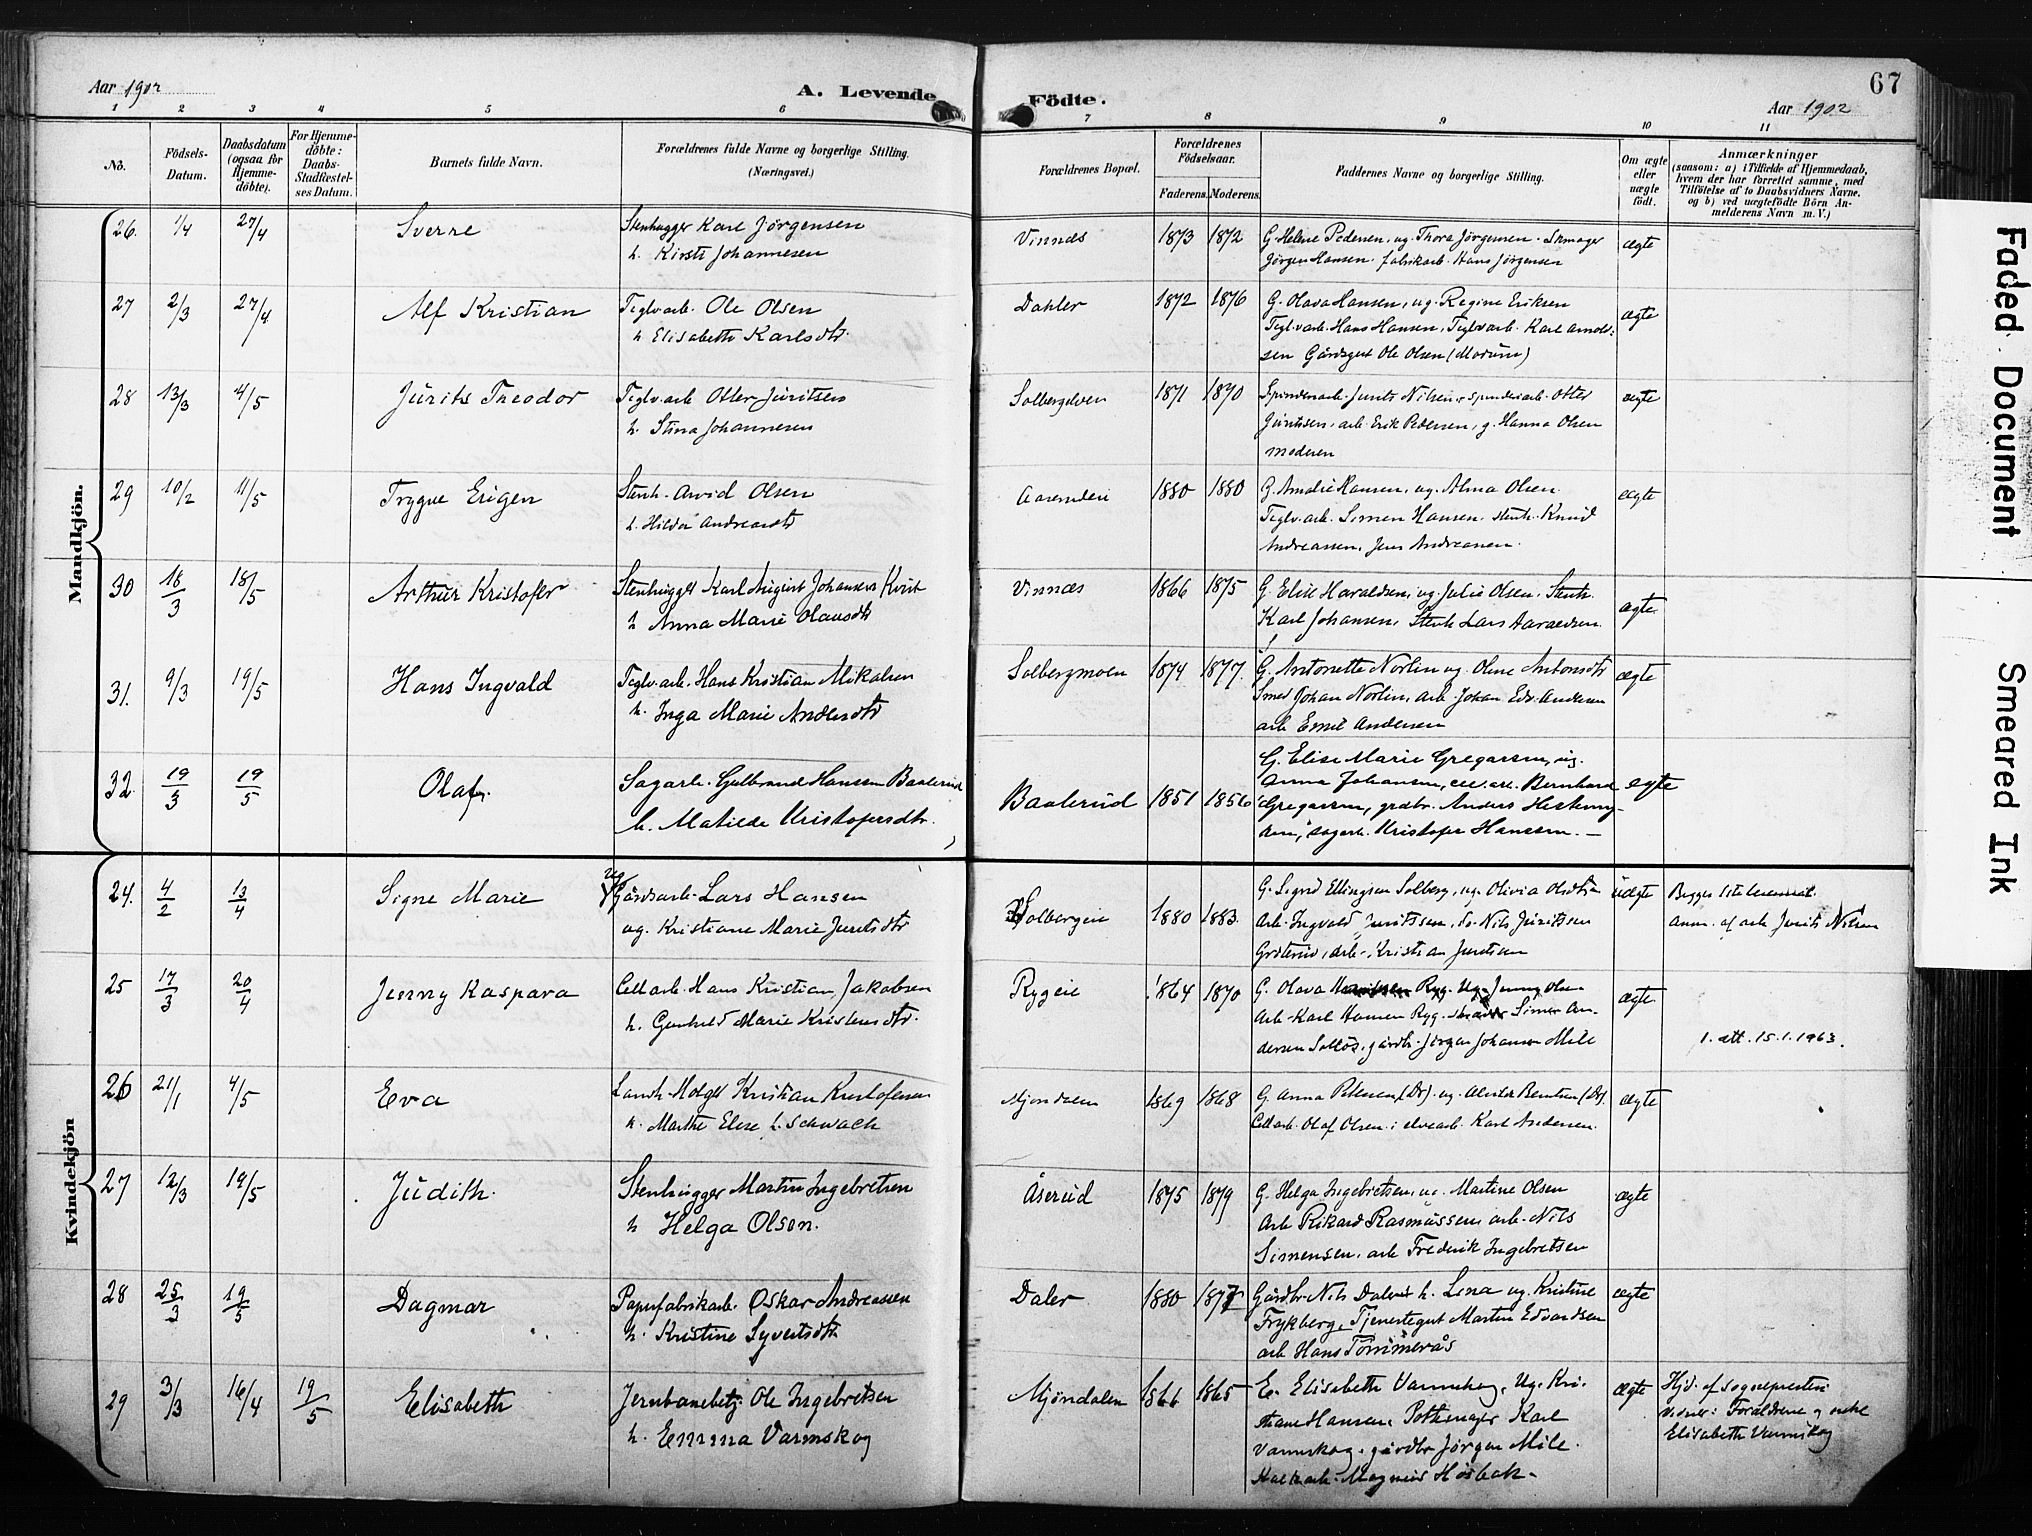 67
Aar 1902
A. Levende
Födte.
Aar 1902
1 2 3 4 5 6 7 8 9 10 11
No.
Födsels-
Datum.
Daabsdatum
(ogsaa for
Hjemme-
döbte).
For Hjemme-
döbte:
Daabs-
Stadfæstel-
ses Datum.
Barnets fulde Navn.
Forældrenes fulde Navne og borgerlige Stilling.
(Næringsvei.)
Forældrenes Bopæl.
Forældrenes
Födselsaar.
Faderens. Moderens.
Faddernes Navne og borgerlige Stilling.
Om ægte
eller
uægte
födt.
Anmærkninger
(saasom: a) i Tilfælde af Hjemmedaab,
hvem der har forrettet samme, med
Tilföielse af to Daabsvidners Navne.
og b) ved uægtefödte Börn An-
melderens Navn m. V.)
Mandkjön.
26. 1/4 27/4 Sverre
Stenhugger Karl Jørgensen
h. Kirsti Johannesen
Vinnæs 1873 1872
G. Helene Pedersen, ug. Thora Jørgensen. Skmager
Jørgen Hansen. fabrikarb. Hans Jørgensen
ægte
27 2/3 27/4 Alf Kristian
Teglv.arb. Ole Olsen
h. Elisabeth Karlsdtr.
Dahler 1872 1876
G. Olava Hansen, ug. Regine Eriksen
Teglv.arb. Hans Hansen, Teglv.arb. Karl Arnold-
sen Gårdsgut Ole Olsen (Modum)
ægte
28 13/3 4/5 Jurits Theodor
Teglv.arb Otter Juritsen
h. Stina Johannesen
Solbergelven 1871 1870
Spinderiarb. Jurits Nilsen, spinderiarb. Otter
Juritsen, arb. Erik Pedersen, g. Hanna Olsen
moderen
ægte
29 10/2 11/5 Trygve Erigen
Stenh. Arvid Olsen
h. Hilda Andreasdtr
1880 1880
G. Amalie Hansen, ug. Alma Olsen
Teglv.arb. Simen Hansen. stenh. Knud
Andreassen, Jens Andreasen.
ægte
30 16/3 18/5 Arthur Kristofer
Stenhugger Karl August Johansen Kvist
h Anna Marie Olausdtr
Vinnæs 1866 1875
G. Elise Haraldsen, ug. Julie Olsen. Stenh.
Karl Johansen, Stenh Lars Haraldsen
ægte
31. 9/3 19/5 Hans Ingvald
Teglv.arb. Hans Kristian Mikalsen
h. Inga Marie Andersdtr
Solbergmoen 1874 1877.
G. Antonette Norlin ug. Oline Antonsdtr
Smed Johan Norlin, arb. Johan Edv. Andersen
arb Emil Andersen
ægte
32. 19/3 19/5 Olaf.
Sagarb. Gulbrand Hansen Baalerud
h. Matilde Kristofersdtr.
Baalerud 1851 1856
G. Elise Marie Gregersen, ug.
Anna Johansen, cell.arb. Bernhard
Gregersen, grdbr. Anders
sagarb. Kristofer Hansen. —
ægte
Kvindekjön
24. 4/2 13/4 Signe Marie
Gårdsarb. Lars Hansen
ug. Kristiane Marie Juritsdtr
Solbergeie 1880 1883.
G. Sigrid Ellingsen Solberg, ug. Olivia Olsdtr
Arb. Ingvald Juritssen, do Nils Juritsen
Groterud, Arb. Kristian Juritsen
uægte
Begges 1ste leiermaal.
Anm. af arb Jurits Nilsen
25 17/3 20/4 Jenny Kaspara
Cell.arb. Hans Kristian Jakobsen
h. Gunhild Marie Kristensdtr.
Rygeie 1864 1870
G. Olava Ryg. Ug. Jenny Olsen
Arb. Karl Hansen Ryg. Simen An-
dersen Solløs, gårdbr. Jørgen Johansen Mile
ægte
1. att. 15.1.1963.
26 21/1 4/5 Eva
Landh. Holger Kristian Kristofersen
h. Marthe Elise f. Schwach
Mjøndalen 1869 1868
G. Anna Petersen (Dr). ug. Bentsen (Dr).
Cell.arb. Olaf Olsen; elvearb. Karl Andersen.
ægte
27 12/3 19/5 Judith.
Stenhugger Martin Ingebretsen
h Helga Olsen.
Åserud 1875 1879
G. Helga Ingebretsen, ug. Martine Olsen
Arb Rikard Rasmussen arb. Nils
Simensen, arb Frederik Ingebretsen
ægte
28 25/3 19/5 Dagmar
Papirfabrikarb. Oskar Andreassen
h. Kristine Syvertsdtr
Daler 1880 1877
Gårdbr. Nils Daler h. Lina ug. Kristine
Frykberg, Tjenestegut Martin Edvardsen
arb Hans Tømmerås
ægte
29 3/3 16/4 19/5 Elisabeth
Jernbanebetj. Ole Ingebretsen
h. Emma Varmskog
Mjøndalen 1866 1865
E. Elisabeth Varmskog, Ug. Kri-
stiane Hansen, Pottemager Karl
Varmskog, gårdbr Jørgen Mile.
Magnus Høsbak.
ægte
Hjd. af Sognepresten
Vidner: Forældrene og enke
Elisabeth Varmskog
Faded Document
Smeared Ink